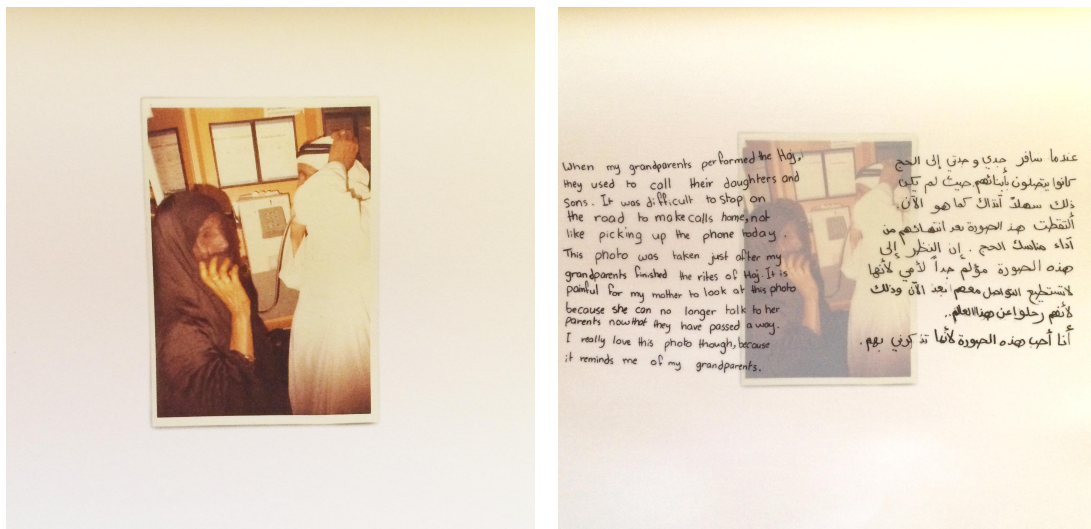 When my grandparents performed the Haj,
they used to call their daughters and
sons. It was difficult to stop on
the road to make calls home, not
like picking up the phone today.
This photo was taken just after my
grandparents finished the rites of Haj. It is
painful for my mother to look at this photo
because she can no longer talk to her
parents now that they have passed away.
I really love this photo though, because
it reminds me of my grandparents.
عندما سافر جدي و جدتي إلى الحج
كانوا يتصلون بأبنائهم حيث لم تكن
ذلك سهلاً آنذاك كما هو الآن.
ألتقطت هذه الصورة بعد انتهائهم من
آداء مناسك الحج. إن النظر إلى
هذه الصورة مؤلم جداً لأمي لأنها
لاتستطيع التواصل معهم بعد الآن وذلك
لأنهم رحلوا عن هذا العالم..
أنا أحب هذه الصورة لأنها تذكرني بهم.